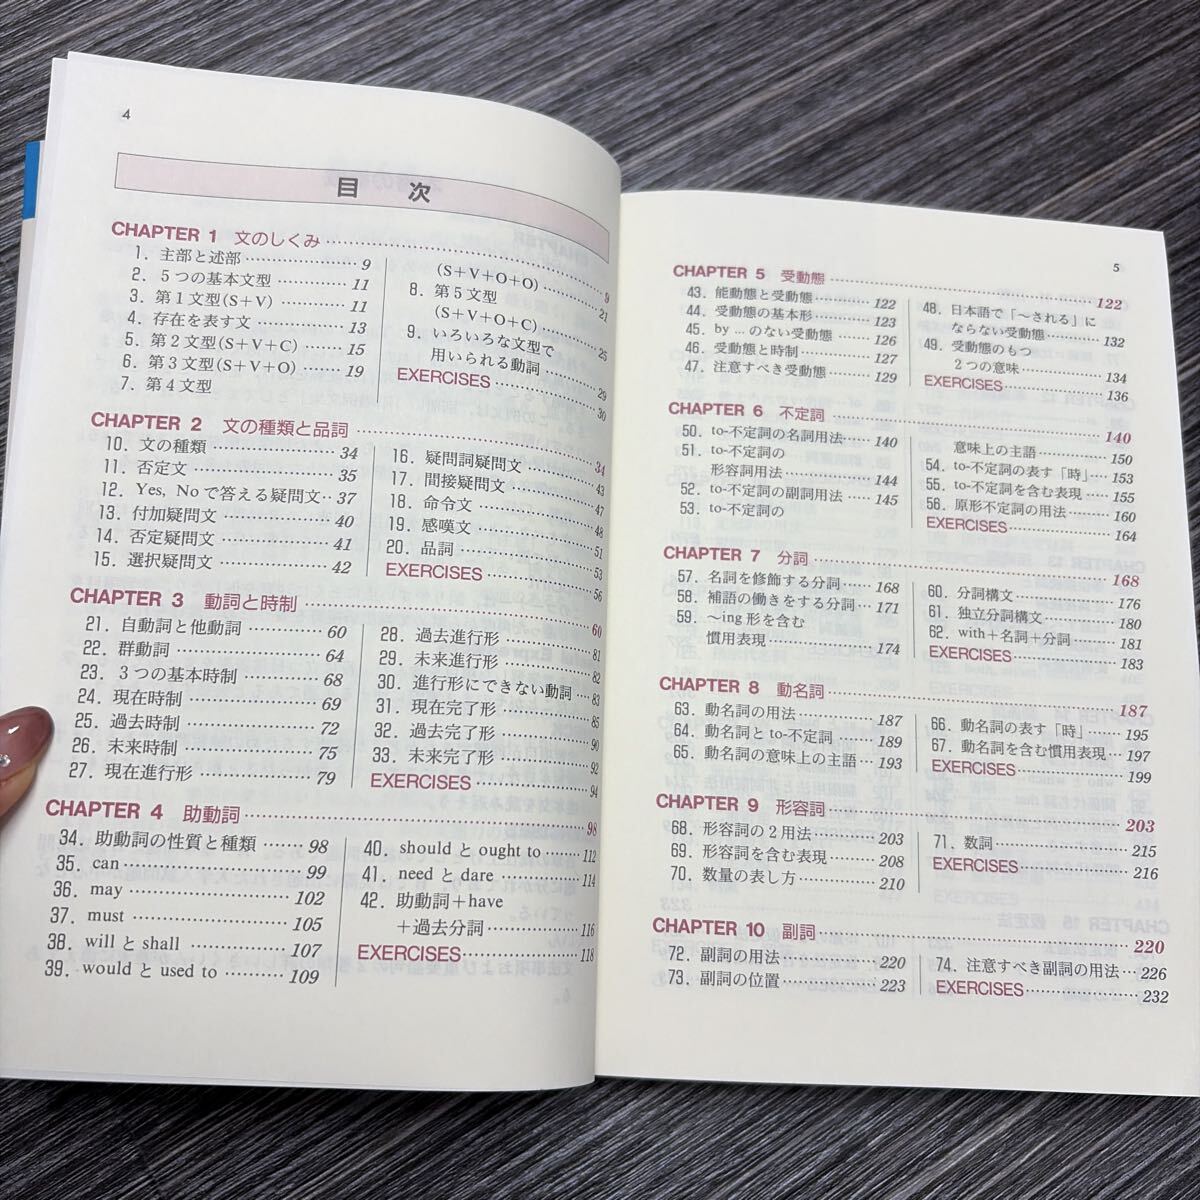 4
目 次
CHAPTER 1 文のしくみ 9
1. 主部と述部 9
2. 5つの基本文型 11
3. 第1文型(S+V) 11
4. 存在を表す文 13
5. 第2文型(S+V+C) 15
6. 第3文型(S+V+O) 19
7. 第4文型
(S+V+O+O) 21
8. 第5文型
(S+V+O+C) 25
9. いろいろな文型で
用いられる動詞 29
EXERCISES 30
CHAPTER 2 文の種類と品詞 34
10. 文の種類 34
11. 否定文 35
12. Yes, Noで答える疑問文 37
13. 付加疑問文 40
14. 否定疑問文 41
15. 選択疑問文 42
16. 疑問詞疑問文 43
17. 間接疑問文 47
18. 命令文 48
19. 感嘆文 51
20. 品詞 53
EXERCISES 56
CHAPTER 3 動詞と時制 60
21. 自動詞と他動詞 60
22. 群動詞 64
23. 3つの基本時制 68
24. 現在時制 69
25. 過去時制 72
26. 未来時制 75
27. 現在進行形 79
28. 過去進行形 81
29. 未来進行形 82
30. 進行形にできない動詞 83
31. 現在完了形 85
32. 過去完了形 90
33. 未来完了形 92
EXERCISES 94
CHAPTER 4 助動詞 98
34. 助動詞の性質と種類 98
35. can 99
36. may 102
37. must 105
38. will と shall 107
39. would と used to 109
40. should と ought to 112
41. need と dare 114
42. 助動詞+have
+過去分詞 116
EXERCISES 118
5
CHAPTER 5 受動態 122
43. 能動態と受動態 122
44. 受動態の基本形 123
45. by ... のない受動態 126
46. 受動態と時制 127
47. 注意すべき受動態 129
48. 日本語で「〜される」に
ならない受動態 132
49. 受動態のもつ
2つの意味 134
EXERCISES 136
CHAPTER 6 不定詞 140
50. to-不定詞の名詞用法 140
51. to-不定詞の
形容詞用法 144
52. to-不定詞の副詞用法 145
53. to-不定詞の
意味上の主語 150
54. to-不定詞の表す「時」 153
55. to-不定詞を含む表現 155
56. 原形不定詞の用法 160
EXERCISES 164
CHAPTER 7 分詞 168
57. 名詞を修飾する分詞 168
58. 補語の働きをする分詞 171
59. 〜ing形を含む
慣用表現 174
60. 分詞構文 176
61. 独立分詞構文 180
62. with+名詞+分詞 181
EXERCISES 183
CHAPTER 8 動名詞 187
63. 動名詞の用法 187
64. 動名詞と to-不定詞 189
65. 動名詞の意味上の主語 193
66. 動名詞の表す「時」 195
67. 動名詞を含む慣用表現 197
EXERCISES 199
CHAPTER 9 形容詞 203
68. 形容詞の2用法 203
69. 形容詞を含む表現 208
70. 数量の表し方 210
71. 数詞 215
EXERCISES 216
CHAPTER 10 副詞 220
72. 副詞の用法 220
73. 副詞の位置 223
74. 注意すべき副詞の用法 226
EXERCISES 232